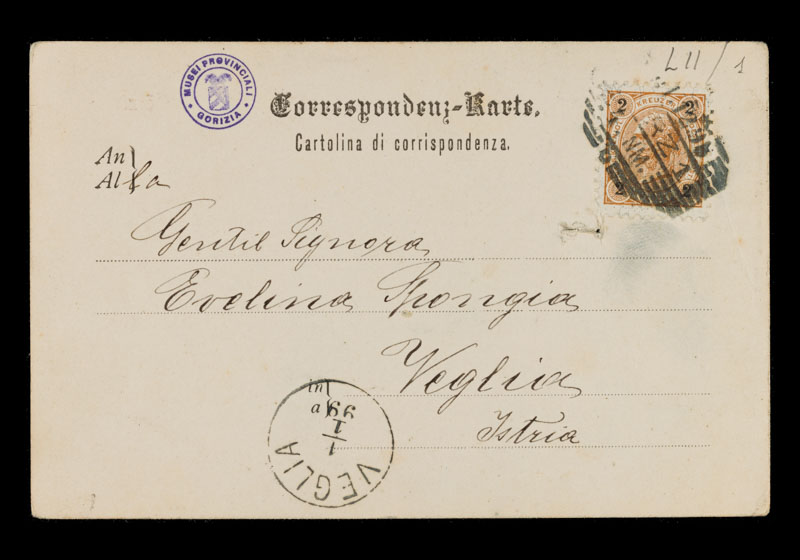 LII/1
MUSEI PROVINCIALI
GORIZIA
Correspondenz-Karte.
Cartolina di corrispondenza.
2 KREUZER 2
2 2
An
Alla
Gentil Signora
Evelina Spongia
Veglia
in
a
Istria
VEGLIA
1
1
99